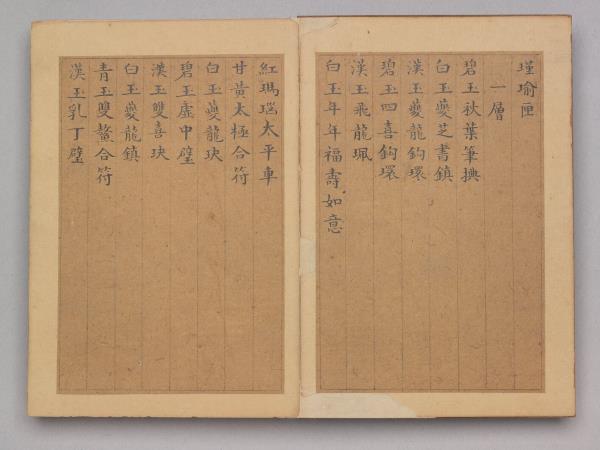 瑾瑜匣
一層
碧玉秋葉筆㨾
白玉夔芝書鎮
漢玉夔龍鈎環
碧玉四喜鈎環
漢玉飛龍珮
白玉年年福壽如意
紅瑪瑙太平車
甘黃太極合符
白玉夔龍玦
碧玉虛中璧
漢玉雙喜玦
白玉夔龍鎮
青玉雙螯合符
漢玉乳丁璧